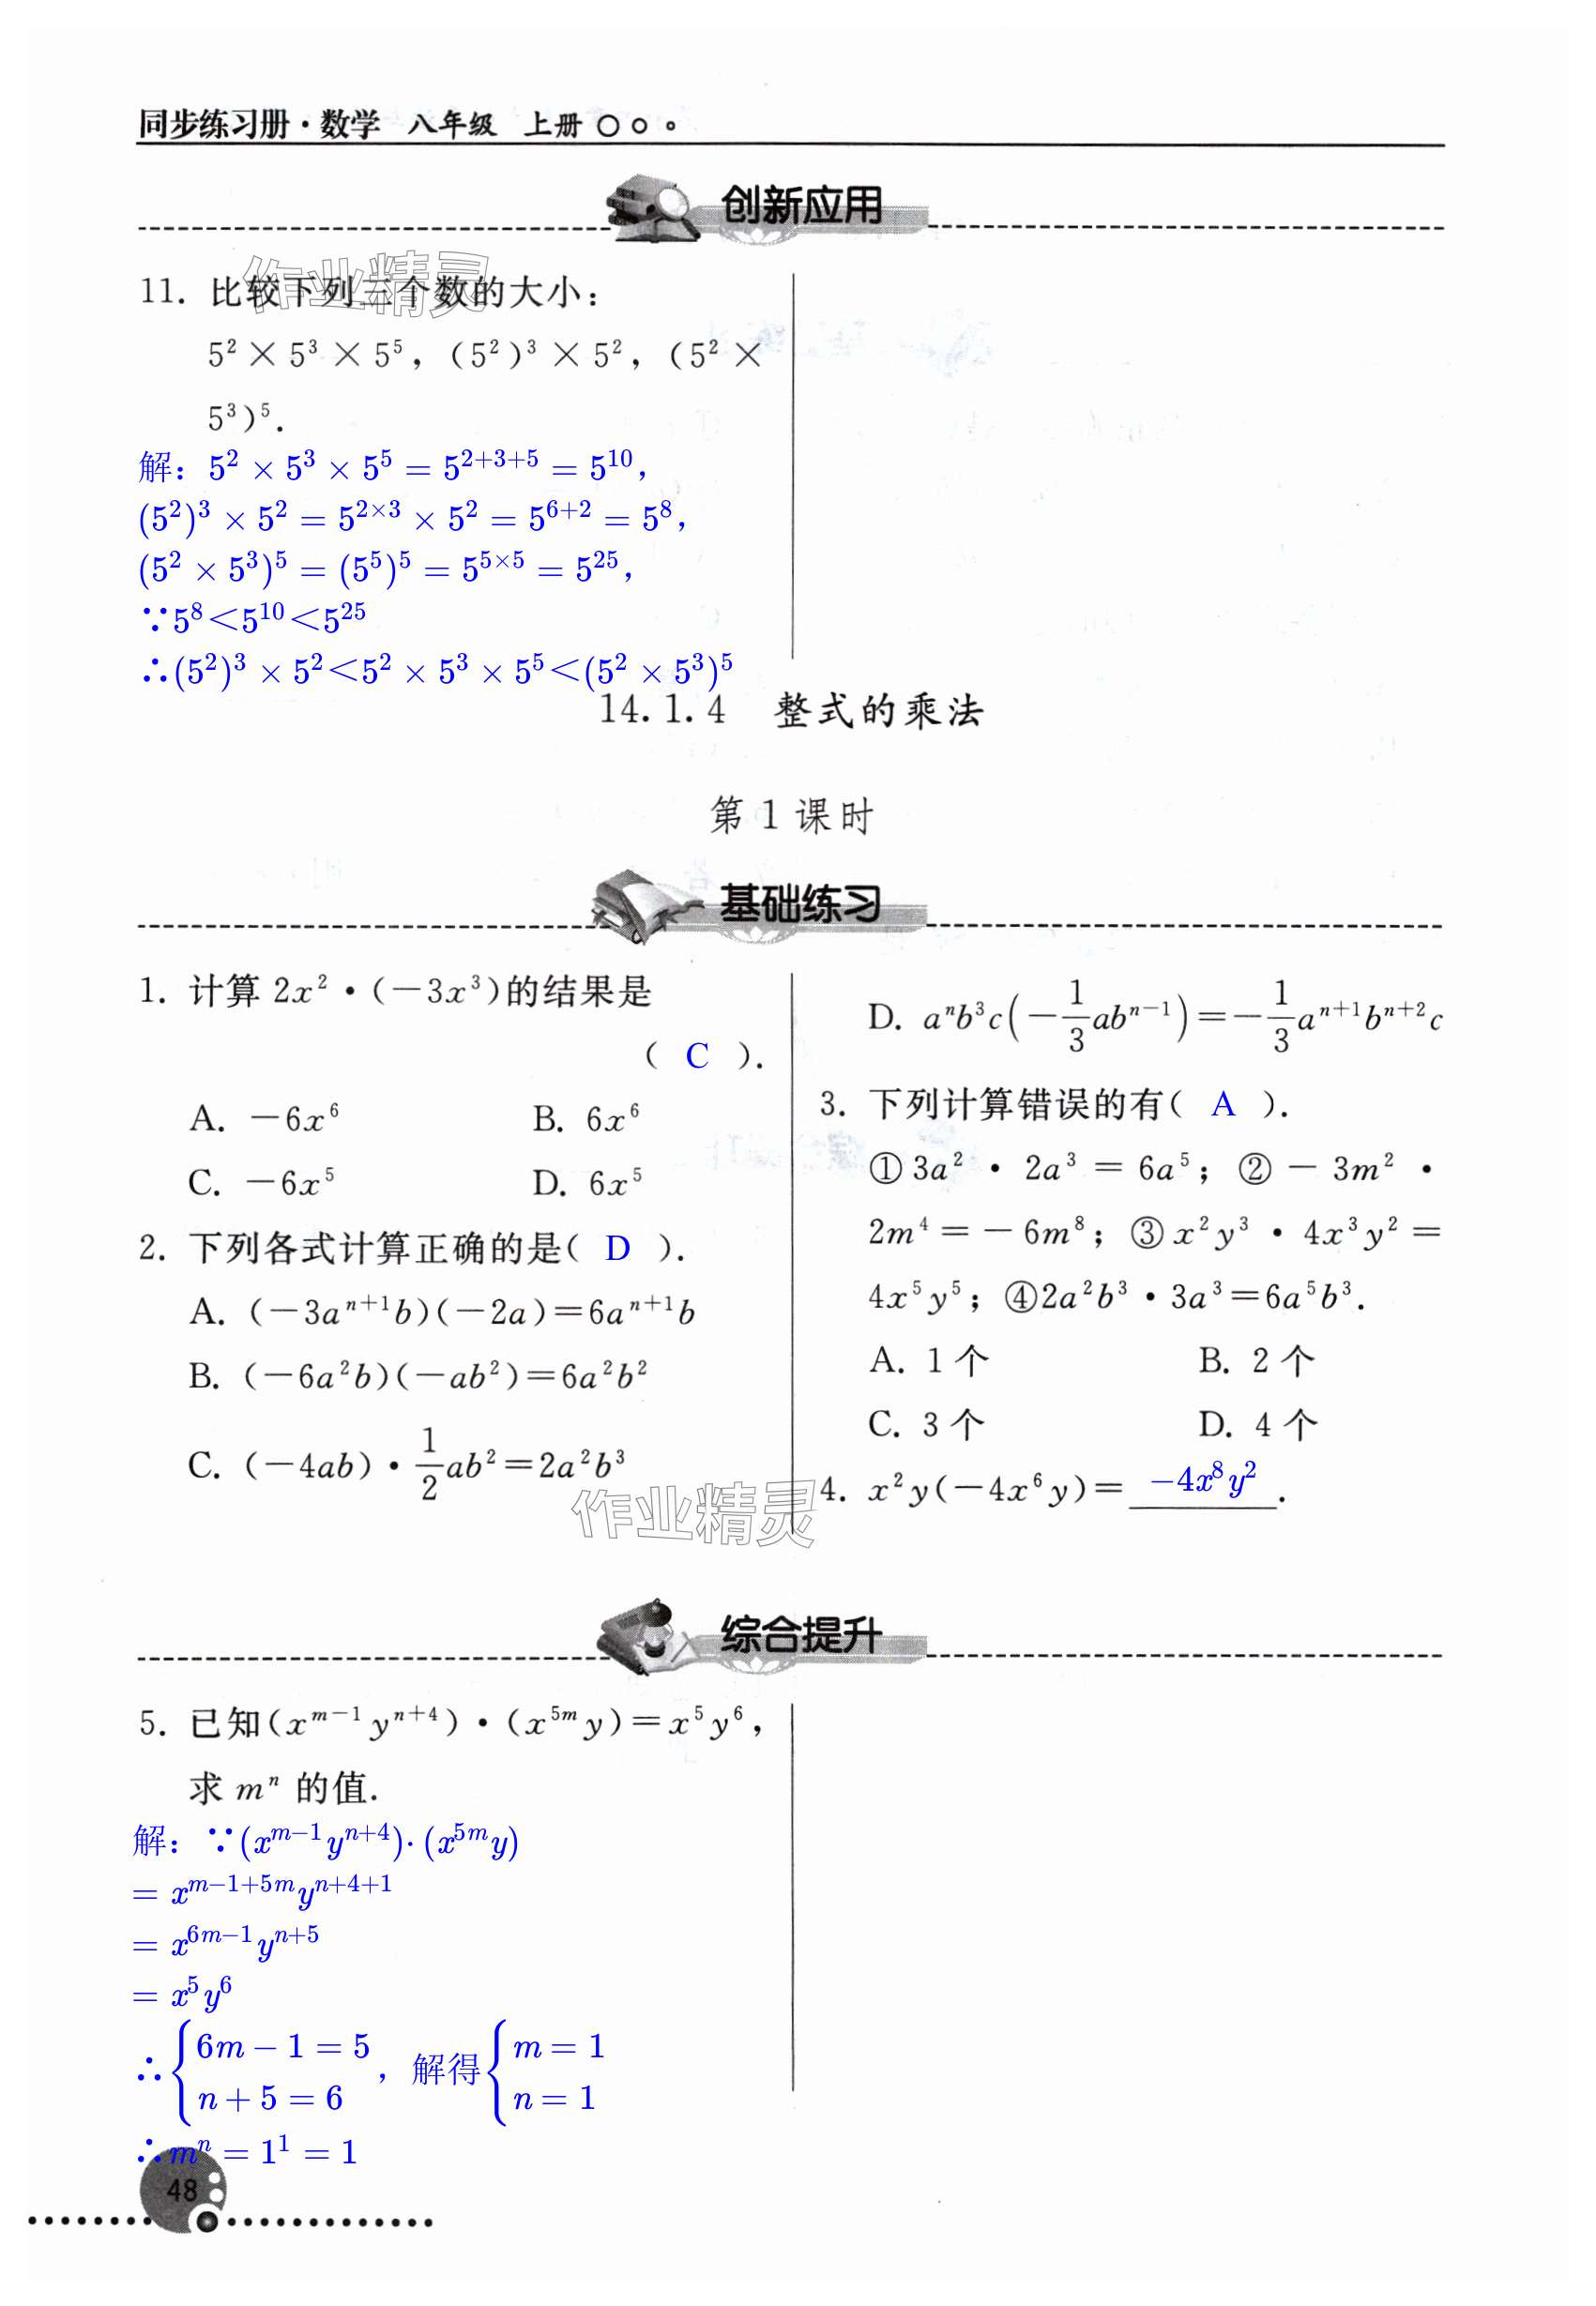 同步练习册·数学 八年级 上册
创新应用
作业精灵
11. 比较下列三个数的大小:
5² × 5³ × 5⁵, (5²)³ × 5², (5² ×
5³)⁵.
解: 5² × 5³ × 5⁵ = 5²⁺³⁺⁵ = 5¹⁰,
(5²)³ × 5² = 5²ˣ³ × 5² = 5⁶⁺² = 5⁸,
(5² × 5³)⁵ = (5⁵)⁵ = 5⁵ˣ⁵ = 5²⁵,
∵5⁸<5¹⁰<5²⁵
∴(5²)³ × 5²<5² × 5³ × 5⁵<(5² × 5³)⁵
14.1.4 整式的乘法
第 1 课时
基础练习
1. 计算 2x²·(-3x³)的结果是
( C ).
A. -6x⁶ B. 6x⁶
C. -6x⁵ D. 6x⁵
2. 下列各式计算正确的是( D ).
A. (-3aⁿ⁺¹b)(-2a)=6aⁿ⁺¹b
B. (-6a²b)(-ab²)=6a²b²
C. (-4ab)·1/2ab²=2a²b³
D. aⁿb³c(-1/3abⁿ⁻¹)=-1/3aⁿ⁺¹bⁿ⁺²c
3. 下列计算错误的有( A ).
①3a² · 2a³ = 6a⁵; ②-3m² ·
2m⁴ = -6m⁸; ③x²y³ · 4x³y² =
4x⁵y⁵; ④2a²b³·3a³=6a⁵b³.
A. 1 个 B. 2 个
C. 3 个 D. 4 个
4. x²y(-4x⁶y)= -4x⁸y² .
作业精灵
综合提升
5. 已知(xᵐ⁻¹yⁿ⁺⁴)·(x⁵ᵐy)=x⁵y⁶,
求 mⁿ 的值.
解: ∵(xᵐ⁻¹yⁿ⁺⁴)·(x⁵ᵐy)
= xᵐ⁻¹⁺⁵ᵐyⁿ⁺⁴⁺¹
= x⁶ᵐ⁻¹yⁿ⁺⁵
= x⁵y�6
∴{6m - 1 = 5, n + 5 = 6, 解得{m = 1, n = 1
∴mⁿ = 1¹ = 1
48